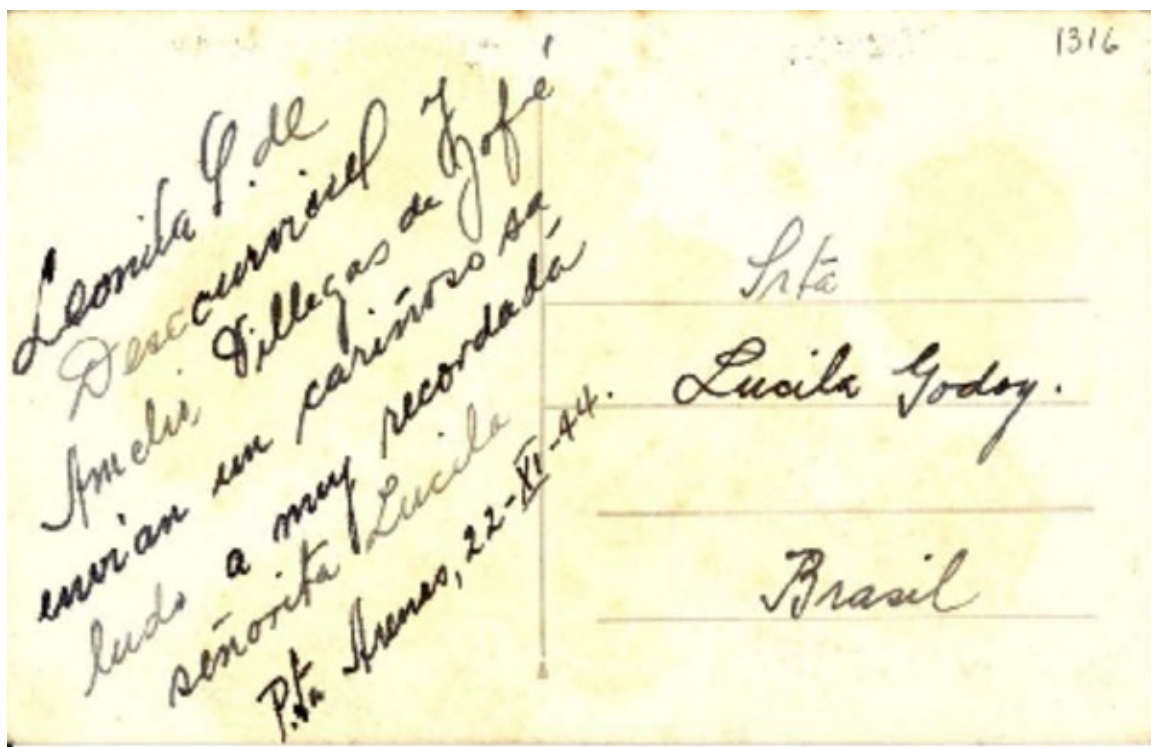 1316
Leonila G. de
Descourvières y
Amelia Villegas de Jofré
envían un cariñoso sa
ludo a muy recordada
señorita Lucila
P.ta Arenas, 22-XI-44.
Srta
Lucila Godoy.
Brasil